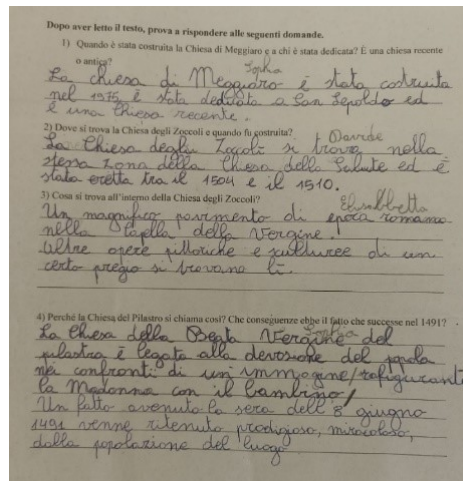 Dopo aver letto il testo, prova a rispondere alle seguenti domande.
1) Quando è stata costruita la Chiesa di Meggiaro e a chi è dedicata? È una chiesa recente
o antica?
Sophia
La chiesa di Meggiaro è stata costruita
nel 1975 è stata dedicata a San Lepoldo ed
è una Chiesa recente.
2) Dove si trova la Chiesa degli Zoccoli e quando fu costruita?
Davide
La Chiesa degli Zoccoli si trova nella
stessa zona della Chiesa della Salute ed è
stata eretta tra il 1504 e il 1510.
3) Cosa si trova all'interno della Chiesa degli Zoccoli?
Elisabetta
Un magnifico pavimento di epoca romana
nella capella della Vergine.
Altre opere pittoriche e sculturee di un
certo pregio si trovano lì.
4) Perché la Chiesa del Pilastro si chiama così? Che conseguenze ebbe il fatto che successe nel 1491?
Sophia
La Chiesa della Beata Vergine del
pilastro è legata alla devozione del popolo
nei confronti di un'immagine/rafigurante
la Madonna con il bambino/
Un fatto avenuto la sera dell'8 giugno
1491 venne ritenuto prodigioso, miracoloso,
dalla popolazione del luogo